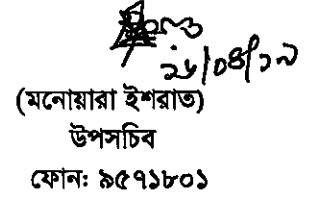 ২৮/০৪/১৯
(মনোয়ারা ইশরাত)
উপসচিব
ফোন: ৯৫৭১৮০১